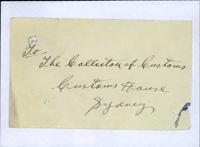 To
The Collector of Customs
Customs House
Sydney